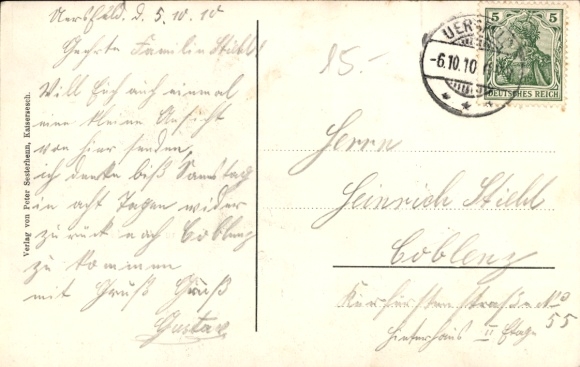 Uersfeld. d. 5.10.10
Geehrte Familie Stiehl
Will Euch auch einmal
eine kleine Ansicht
von hier senden,
ich denke biß Samstag
in acht Tagen wider
zurück nach Coblenz
zu kommen
mit Gruß Gruß
Gustav
Verlag von Peter Sesterhenn, Kaisersesch.
85.-
UERSFELD
-6.10.10
5 5
DEUTSCHES REICH
Herrn
Heinrich Stiehl
Coblenz
Kurfürstenstraße No
55
Hinterhaus II Etage